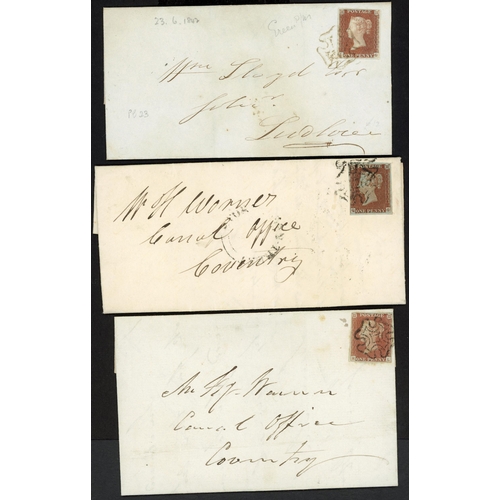 23. 6. 1842
POSTAGE
ONE PENNY
Wm Lloyd Esr
Solicr.
Ludlow
P523
POSTAGE
ONE PENNY
W H Warner
Canal Office
Coventry
POSTAGE
ONE PENNY
Mr Hy. Warner
Canal Office
Coventry